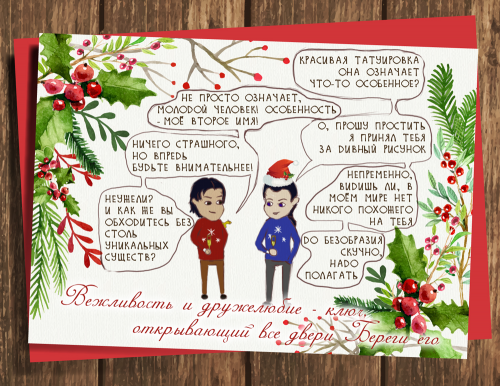 КРАСИВАЯ ТАТУИРОВКА
ОНА ОЗНАЧАЕТ
ЧТО-ТО ОСОБЕННОЕ?
НЕ ПРОСТО ОЗНАЧАЕТ,
МОЛОДОЙ ЧЕЛОВЕК! ОСОБЕННОСТЬ
- МОЁ ВТОРОЕ ИМЯ!
О, ПРОШУ ПРОСТИТЬ
Я ПРИНЯЛ ТЕБЯ
ЗА ДИВНЫЙ РИСУНОК
НИЧЕГО СТРАШНОГО,
НО ВПРЕДЬ
БУДЬТЕ ВНИМАТЕЛЬНЕЕ!
НЕПРЕМЕННО,
ВИДИШЬ ЛИ, В
МОЁМ МИРЕ НЕТ
НИКОГО ПОХОЖЕГО
НА ТЕБЯ
НЕУЖЕЛИ?
И КАК ЖЕ ВЫ
ОБХОДИТЕСЬ БЕЗ
СТОЛЬ
УНИКАЛЬНЫХ
СУЩЕСТВ?
DО БЕЗОБРАЗИЯ
СКУЧНО,
НАDО
ПОЛАГАТЬ
Вежливость и дружелюбие - ключ,
открывающий все двери Береги его